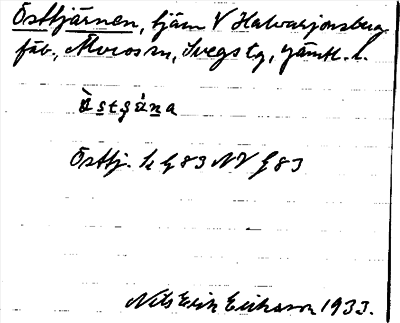 Östtjärnen, tjärn V Halvarjonsberg
fäb., Älvros sn, Svegs tg, Jämtl. l.
östgäna
Östtj. k G 83 NV G 83
Nils Erik Eriksson 1933.